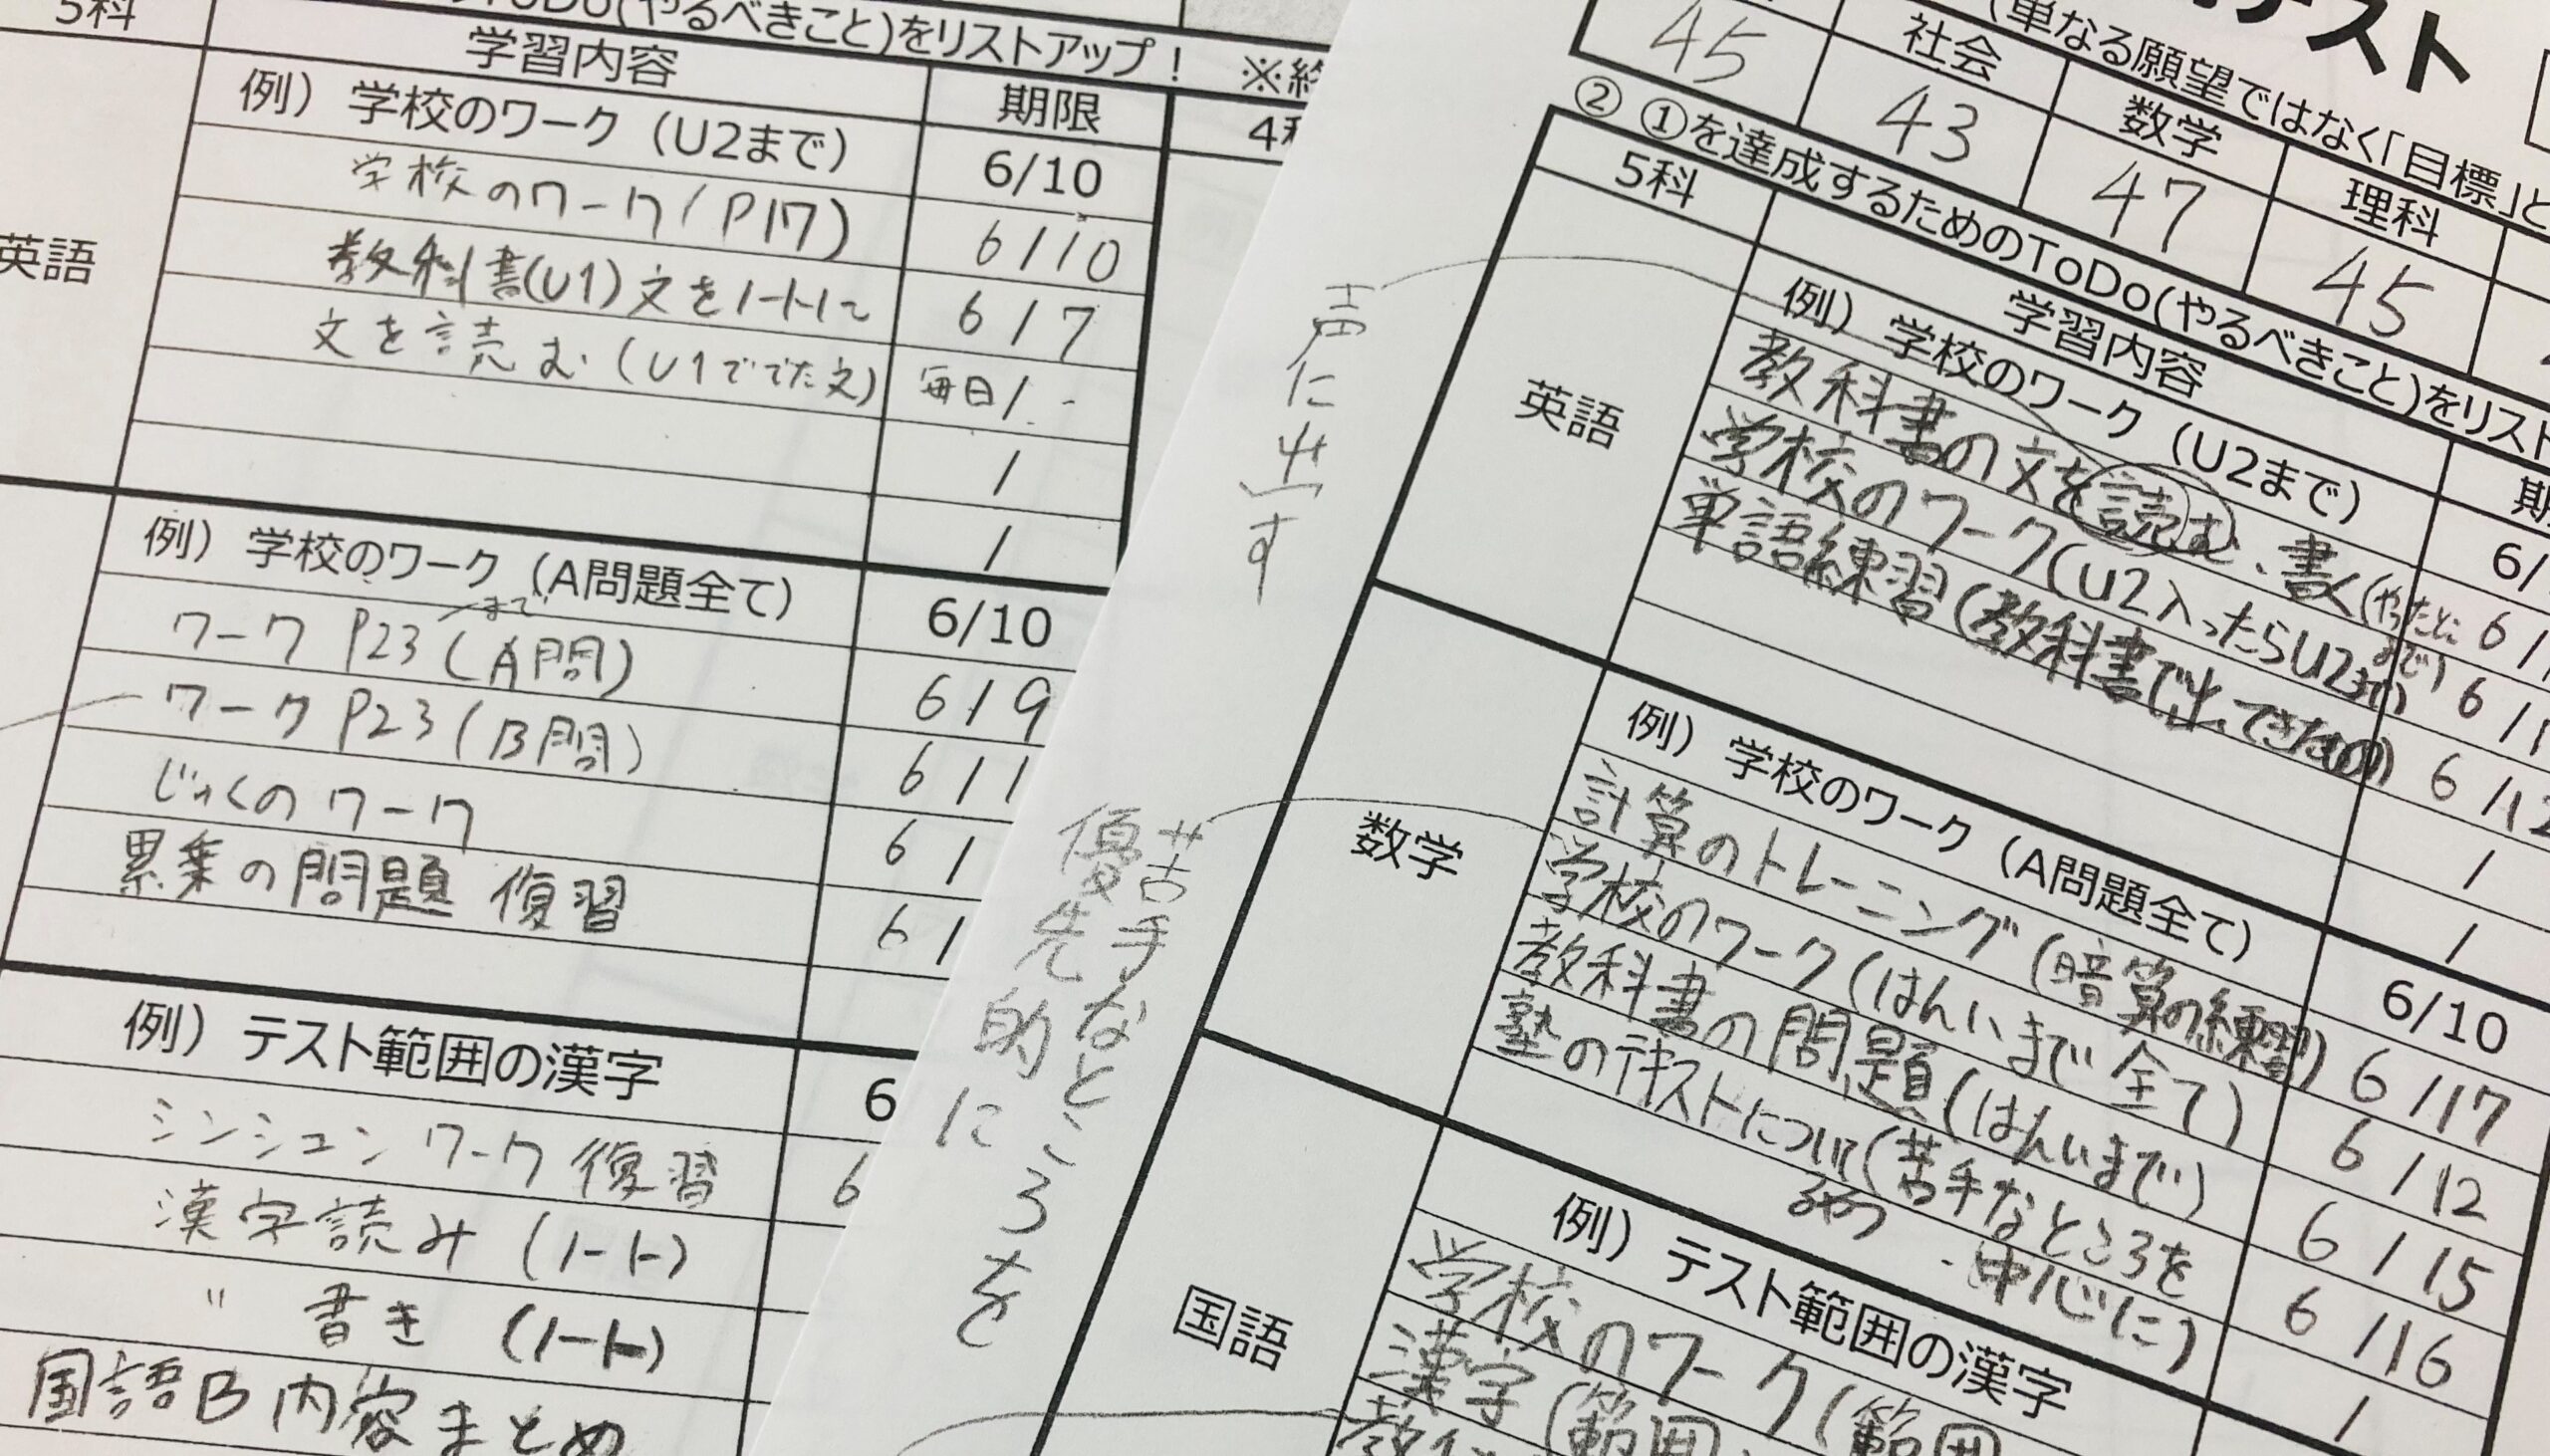 5科
ToDo(やるべきこと)をリストアップ！ ※終
学習内容 期限
例）学校のワーク（U2まで） 6/10
4科
英語
学校のワーク(P17) 6/10
教科書(U1)文をノートに 6/7
文を読む(U1ででた文) 毎日/
/
/
例）学校のワーク（A問題全て） 6/10
まで
ワーク P23(A問) 6/9
ワーク P23(B問) 6/1
じゅくのワーク 6/
累乗の問題 復習 6/
例）テスト範囲の漢字 6
シンシュンワーク復習 6
漢字読み(ノート)
〃 書き (ノート)
国語B 内容まとめ
テスト
(単なる願望ではなく「目標」と
社会 数学 理科
45 43 47 45
② ①を達成するためのToDo(やるべきこと)をリスト
5科 学習内容 期
英語
例）学校のワーク（U2まで） 6/
教科書の文を読む、書く(やったとこまで) 6/1
学校のワーク(U2入ったらU2まで) 6/1
単語練習(教科書で出てきたもの) 6/12
/
/
声に出す
数学
例）学校のワーク（A問題全て） 6/10
計算のトレーニング(暗算の練習) 6/17
学校のワーク(はんいまで全て) 6/12
教科書の問題(はんいまで) 6/15
塾のテキストについてるやつ(苦手なところを中心に) 6/16
/
苦手なところを
優先的に
国語
例）テスト範囲の漢字
学校のワーク(範囲
漢字(範囲
教科